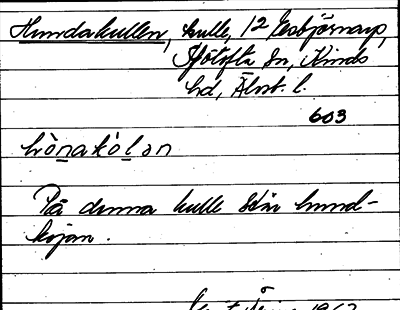 Hundakullen, kulle, 12 Esbjörnarp,
Sjötofta sn, Kinds
hd, Älvsb. l.
603
hònakòlan
På denna kulle står hund-
kojan.
1962